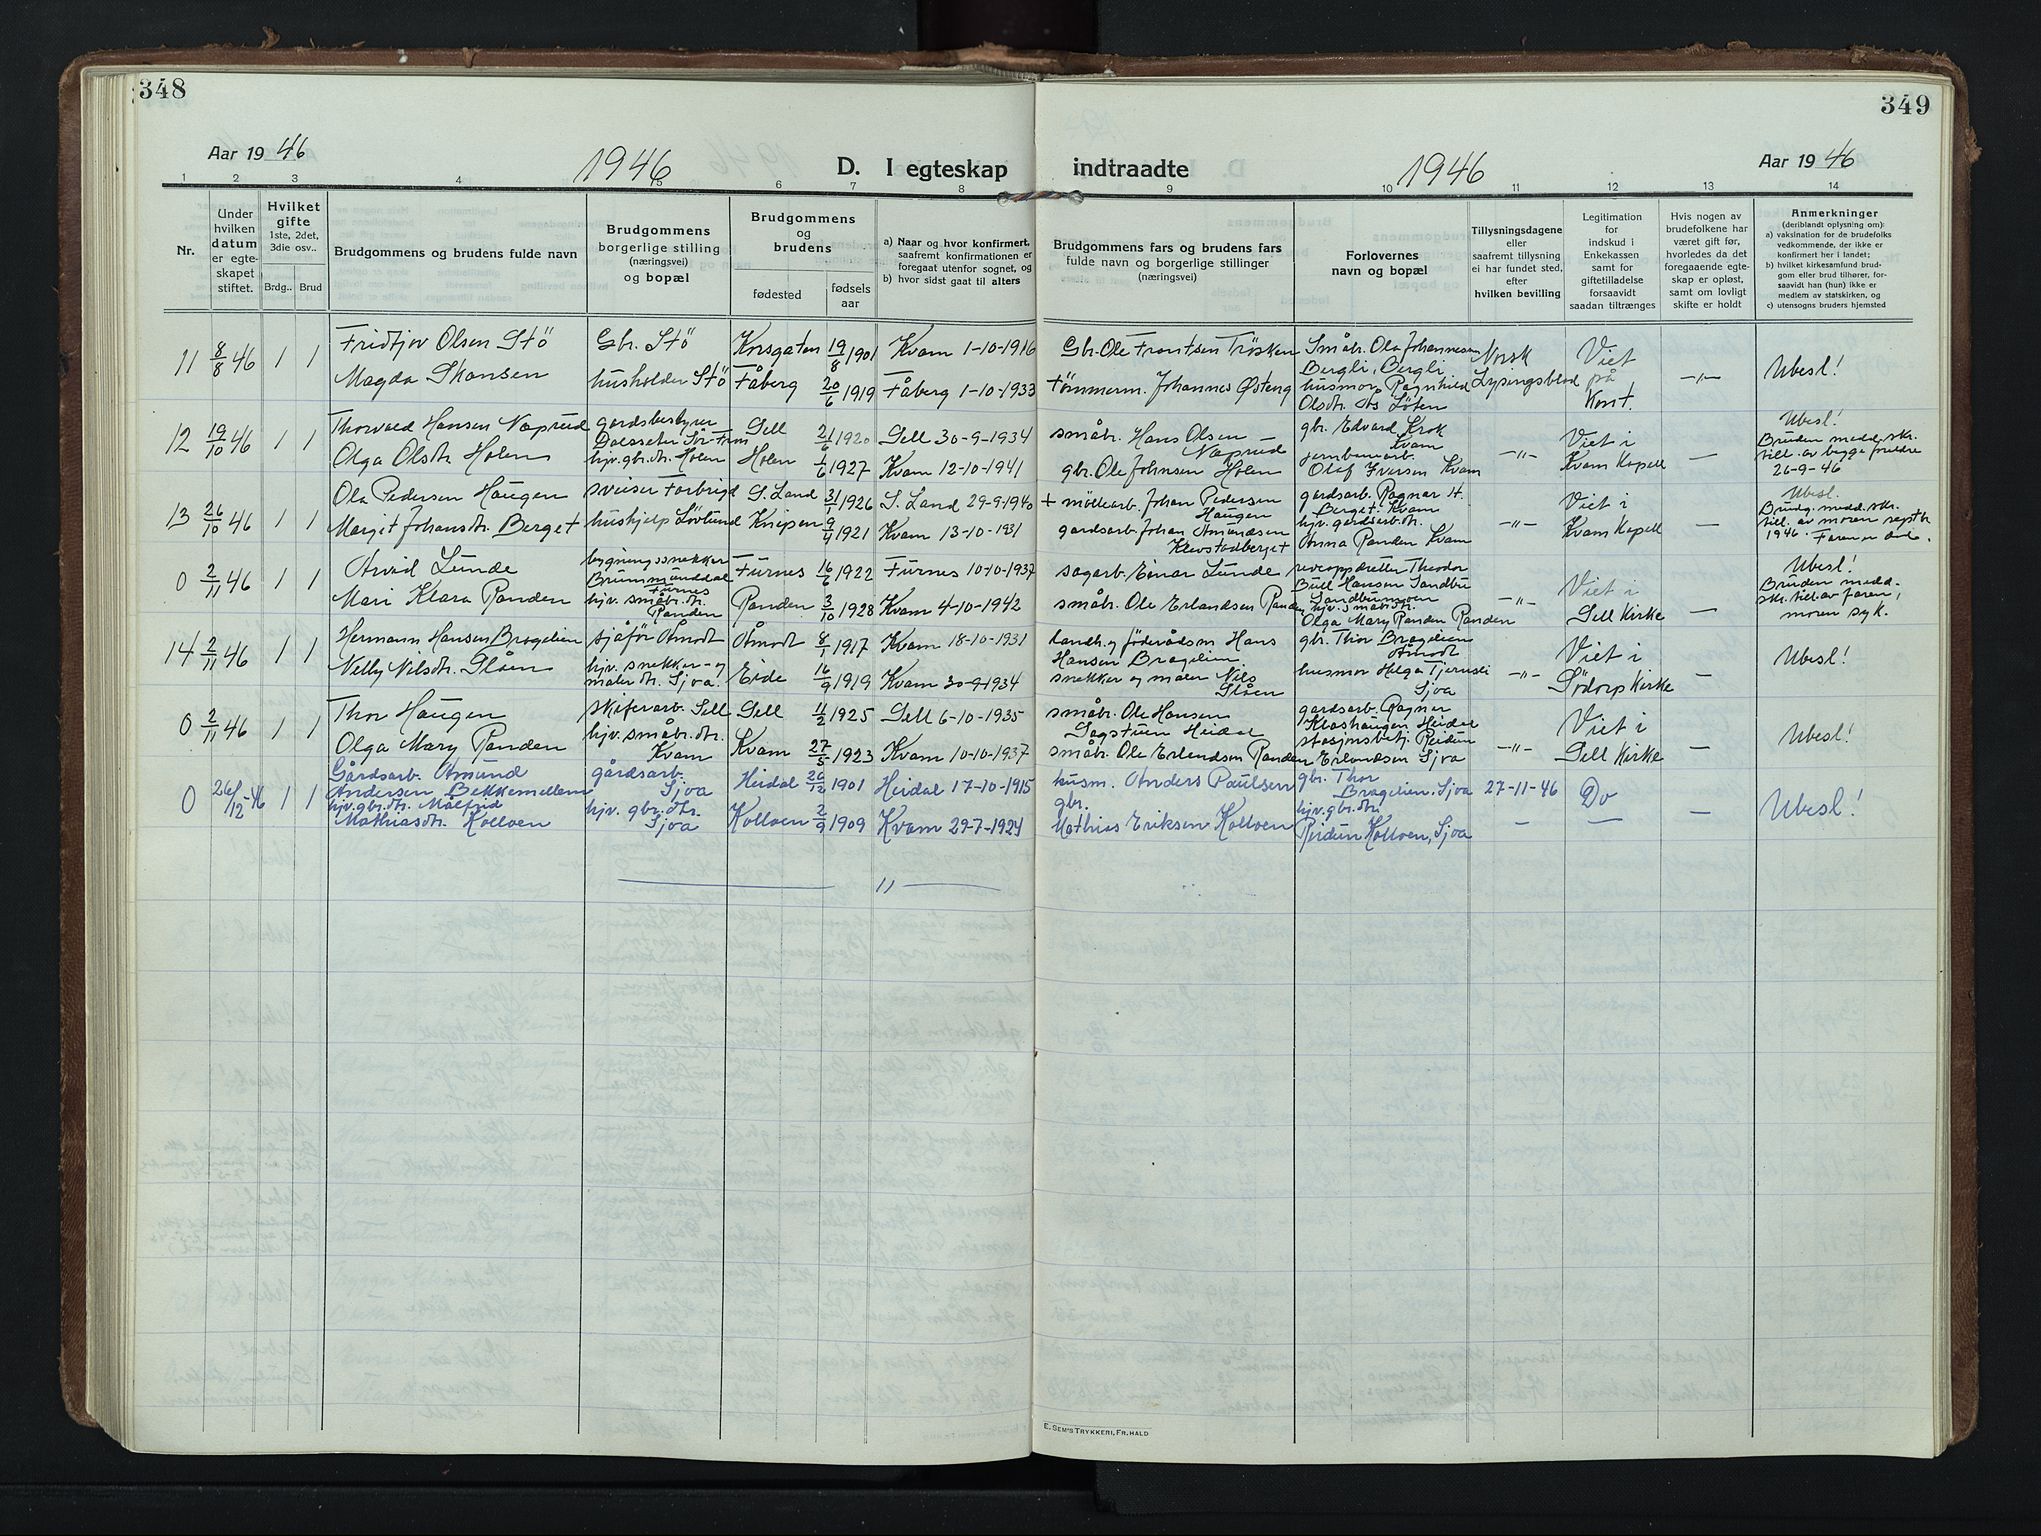 348
349
Aar 19 46
1946
D. I egteskap
indtraadte
1946
Aar 19 46
1 2 3 4 5 6 7 8
9 10 11 12 13 14
Nr.
Under hvilken datum er egteskapet stiftet.
Hvilket gifte 1ste, 2det, 3die osv..
Brdg..
Brud
Brudgommens og brudens fulde navn
Brudgommens borgerlige stilling (næringsvei) og bopæl
Brudgommens og brudens
fødested
fødsels aar
a) Naar og hvor konfirmert, saafremt konfirmationen er foregaat utenfor sognet, og
b) hvor sidst gaat til alters
Brudgommens fars og brudens fars fulde navn og borgerlige stillinger (næringsvei)
Forlovernes navn og bopæl
Tillysningsdagene eller saafremt tillysning ei har fundet sted, efter hvilken bevilling
Legitimation for indskud i Enkekassen samt for giftetilladelse forsaavidt saadan tiltrænges
Hvis nogen av brudefolkene har været gift før, hvorledes da det foregaaende egteskap er opløst, samt om lovligt skifte er holdt
Anmerkninger (deriblandt oplysning om):
a) vaksination for de brudefolks vedkommende, der ikke er konfirmert her i landet;
b) hvilket kirkesamfund brudgom eller brud tilhører, forsaavidt han (hun) ikke er medlem av statskirken, og
c) utensogns bruders hjemsted
11 8/8 46 1 1 Fridtjov Olsen Stö Gbr. Stö Korsgaten 19/8 1901 Kvam 1-10-1916 Gbr. Ole Frantsen Trösken Småbr. Ola Johannesen Bergli, Bergli Norsk Viet på Kont. Ubesl!
Magda Skansen husholder Stö Fåberg 20/6 1919 Fåberg 1-10-1933 +tømmerm. Johannes Østeng husmor Ragnhild Olsdtr. Løten Lysingsblad -"-
12 19/10 46 1 1 Thorvald Hansen Næprud gardsbestyrer Sell 21/6 1920 Sell 30-9-1934 småbr. Hans Olsen Næprud gbr. Edvard Krok Kvam Viet i Kvam Kapell Ubesl!
Olga Olsdtr. Holen hjv. gbr. dtr. Holen Holen 1/6 1927 Kvam 12-10-1941 gbr. Ole Johnsen Holen jernbanearb. Olaf Iversen Kvam -"- — Bruden medd. skr. till. av begge foreldre 26-9-46
13 26/10 46 1 1 Ola Pedersen Haugen sveiser Forbrigd S. Land 3/1 1926 S. Land 29-9-1940 + møllearb. Johan Pedersen Haugen gardsarb. Ragnar H. Berget. Kvam Viet i Kvam Kapell Ubesl.
Margit Johansdtr. Berget hushjelp Lövlund Knipen 9/4 1921 Kvam 13-10-1931 gardsarb. Johan Amundsen Klevstadberget hjv. gardsarb. dtr. Anna Randen Kvam -"- — Brudg. medd. skr. till. av moren 1946. Faren er død.
0 2/11 46 1 1 Arvid Lunde bygningssnekker Brummunddal Furnes Furnes 16/2 1922 Furnes 10-10-1937 sagarb. Einar Lunde reveoppdretter Theodor Bull Hansen Sandbu Sandbumoen Viet i Sell Kirke Ubesl!
Mari Klara Randen hjv. småbr. dtr. Randen Randen 3/10 1928 Kvam 4-10-1942 småbr. Ole Erlandsen Randen hjv. småbr. dtr. Olga Mary Randen Randen -"- — Bruden medd. skr. till. av faren, moren syk.
14 2/11 46 1 1 Hermann Hansen Bragelien sjåfør Åmodt Åmodt 8/1 1917 Kvam 18-10-1931 landh. og föderådsm Hans Hansen Bragelien. gbr. Thor Bragelien Åmodt Viet i Södorp Kirke Ubesl!
Nelly Nilsdtr. Slåen hjv. snekker- og maler dtr. Sjoa. Eide 16/9 1919 Kvam 30-9-1934 snekker og maler Nils Slåen husmor Helga Tjernsli Sjoa -"- —
0 2/11 46 1 1 Thor Haugen skiferarb. Sell Sell 11/2 1925 Sell 6-10-1935 småbr. Ole Hansen Sagstuen Heidal gardsarb. Ragnar Klashaugen Heidal Viet i Sell Kirke Ubesl!
Olga Mary Randen hjv. småbr. dtr. Kvam Kvam 27/5 1923 Kvam 10-10-1937 småbr. Ole Erlandsen Randen stasjonsbetj. Reidun Erlandsen Sjoa -"- —
0 26/12-46 1 1 Gårdsarb. Amund Andersen Bekkemellem gårdsarb. Sjoa Heidal 26/12 1901 Heidal 17-10-1915 husm. Anders Paulsen gbr. Thor Bragelien. Sjoa 27-11-46 Do Ubesl!
hjv. gbr. dtr. Målfrid Mathiasdtr. Kolloen hjv. gbr. dtr. Sjoa Kolloen 2/9 1909 Kvam 29-7-1924 gbr. Mathias Eriksen Kolloen hjv. gbr. dtr. Reidun Kolloen, Sjoa — — —
— " —
E. SEM'S TRYKKERI, FR.HALD